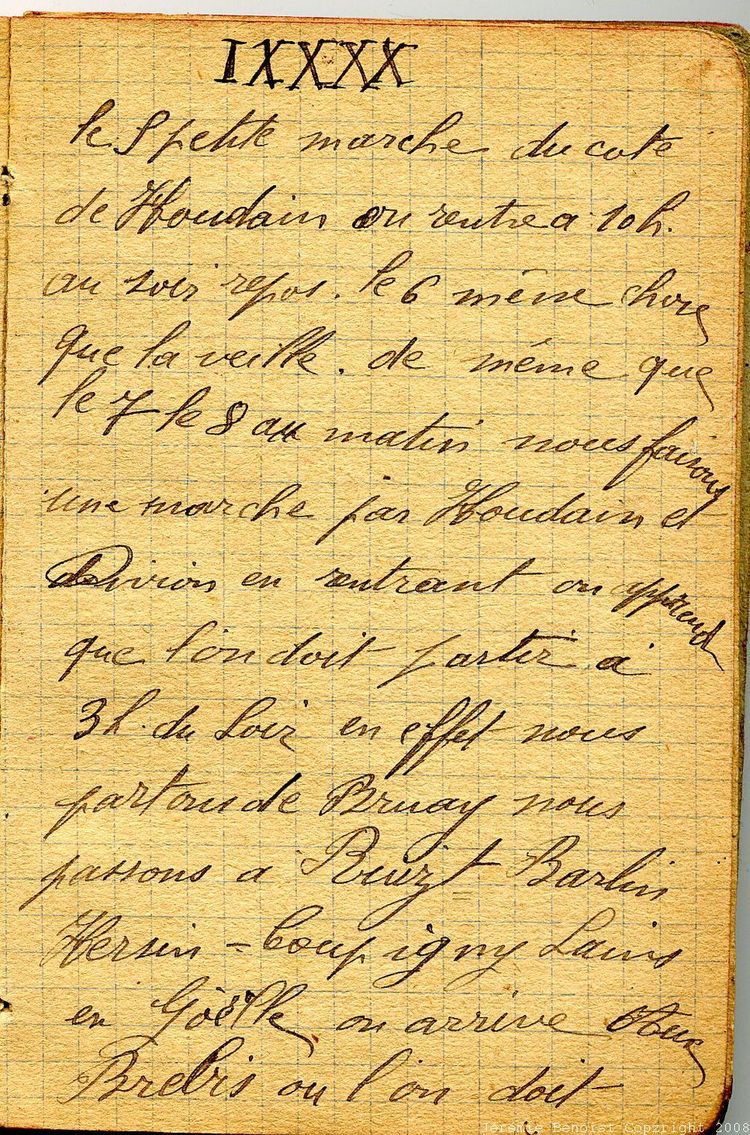 IXXXX
le 5 petite marche du coté
de Houdain on rentre a 10h.
au soir repos. le 6 même chose
que la veille. de même que
le 7 le 8 au matin nous faisons
une marche par Houdain et
Divion en rentrant on apprend
que l'on doit partir a
3h. du soir en effet nous
partons de Bruay nous
passons a Ruizt Barlin
Hersin = Coupigny Sains
en Goëlle on arrive aux
Brebis ou l'on doit
Jeremie Benoist Copyright 2008